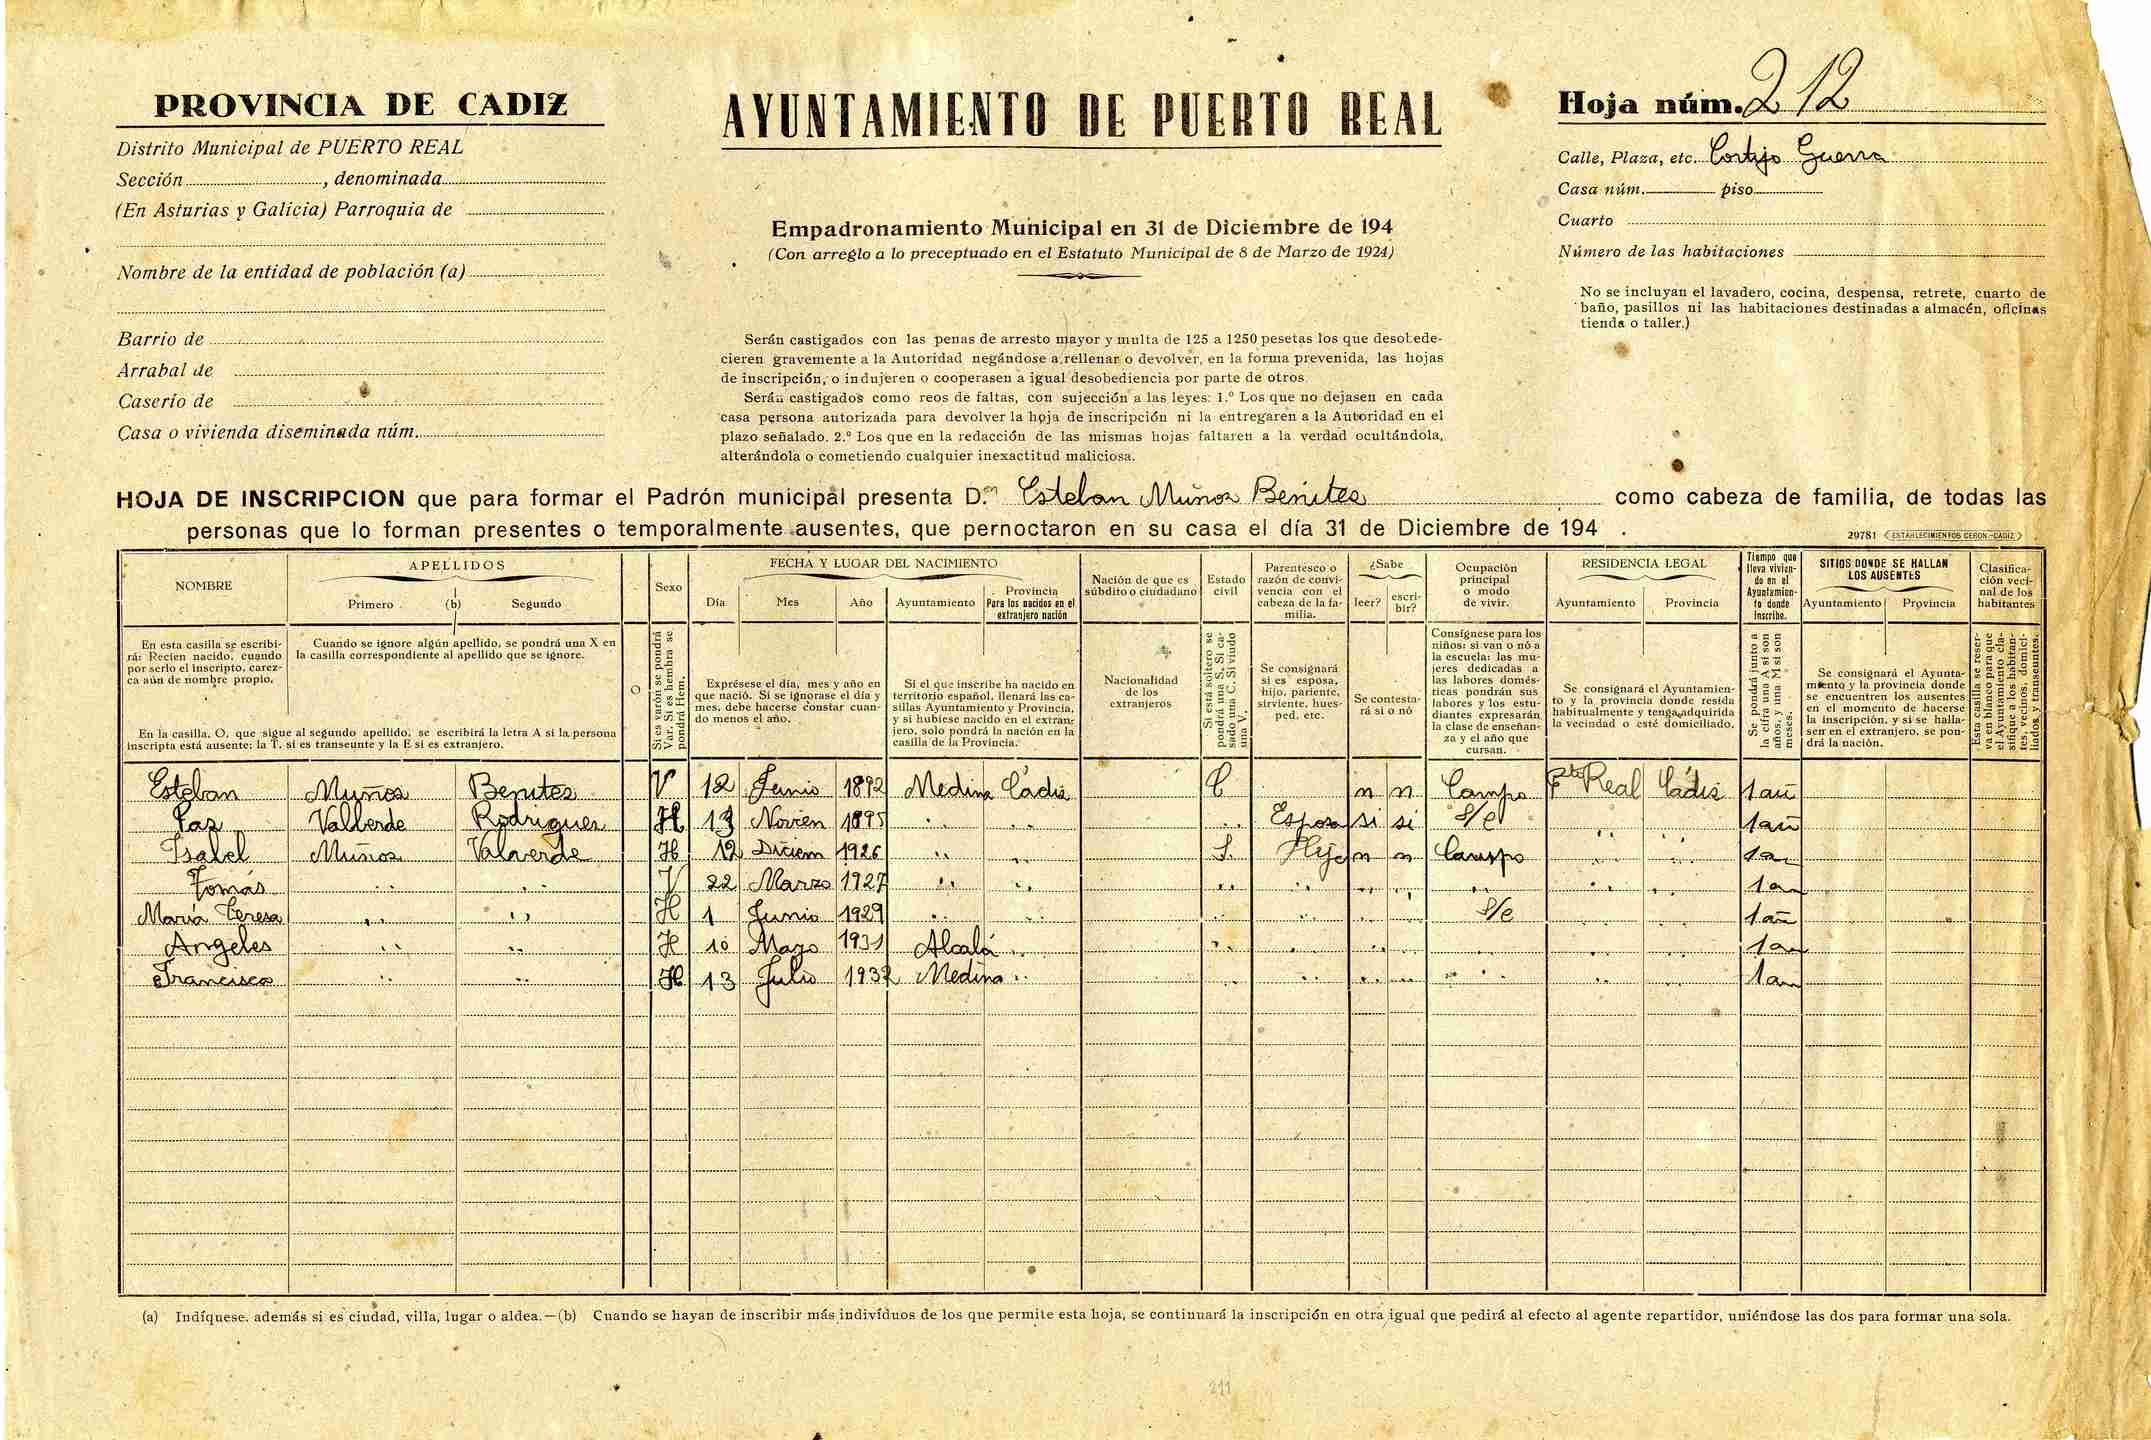 PROVINCIA DE CADIZ
Distrito Municipal de PUERTO REAL
Sección , denominada
(En Asturias y Galicia) Parroquia de
Nombre de la entidad de población (a)
Barrio de
Arrabal de
Caserío de
Casa o vivienda diseminada núm.
AYUNTAMIENTO DE PUERTO REAL
Empadronamiento Municipal en 31 de Diciembre de 194
(Con arreglo a lo preceptuado en el Estatuto Municipal de 8 de Marzo de 1924)
Serán castigados con las penas de arresto mayor y multa de 125 a 1250 pesetas los que desobede-
cieren gravemente a la Autoridad negándose a rellenar o devolver, en la forma prevenida, las hojas
de inscripción, o indujeren o cooperasen a igual desobediencia por parte de otros
Serán castigados como reos de faltas, con sujección a las leyes: 1.º Los que no dejasen en cada
casa persona autorizada para devolver la hoja de inscripción ni la entregaren a la Autoridad en el
plazo señalado. 2.º Los que en la redacción de las mismas hojas faltaren a la verdad ocultándola,
alterándola o cometiendo cualquier inexactitud maliciosa.
Hoja núm. 212
Calle, Plaza, etc. Cortijo Guerra
Casa núm. piso
Cuarto
Número de las habitaciones
No se incluyan el lavadero, cocina, despensa, retrete, cuarto de
baño, pasillos ni las habitaciones destinadas a almacén, oficinas
tienda o taller.)
HOJA DE INSCRIPCION que para formar el Padrón municipal presenta D.ⁿ Esteban Muñoz Benites como cabeza de familia, de todas las
personas que lo forman presentes o temporalmente ausentes, que pernoctaron en su casa el día 31 de Diciembre de 194 .
29781 ESTABLECIMIENTOS CERON-CADIZ
NOMBRE
APELLIDOS
Primero (b) Segundo
O
Sexo
FECHA Y LUGAR DEL NACIMIENTO
Día Mes Año Ayuntamiento
Provincia
Para los nacidos en el
extranjero nación
Nación de que es
súbdito o ciudadano
Estado
civil
Parentesco o
razón de convi-
vencia con el
cabeza de la fa-
milia.
¿Sabe
leer? escri-
bir?
Ocupación
principal
o modo
de vivir.
RESIDENCIA LEGAL
Ayuntamiento Provincia
Tiempo que
lleva vivien-
do en el
Ayuntamien-
to donde
inscribe.
SITIOS DONDE SE HALLAN
LOS AUSENTES
Ayuntamiento Provincia
Clasifica-
ción veci-
nal de los
habitantes
En esta casilla se escribi-
rá: Recien nacido, cuando
por serlo el inscripto, carez-
ca aún de nombre propio.
Cuando se ignore algún apellido, se pondrá una X en
la casilla correspondiente al apellido que se ignore.
En la casilla, O, que sigue al segundo apellido, se escribirá la letra A si la persona
inscripta está ausente: la T, si es transeunte y la E si es extranjero.
Si es varón se pondrá
Var. Si es hembra se
pondrá Hem.
Exprésese el día, mes y año en
que nació. Si se ignorase el día y
mes, debe hacerse constar cuan-
do menos el año.
Si el que inscribe ha nacido en
territorio español, llenará las ca-
sillas Ayuntamiento y Provincia,
y si hubiese nacido en el extran-
jero, solo pondrá la nación en la
casilla de la Provincia.
Nacionalidad
de los
extranjeros
Si está soltero se
pondrá una S. Si ca-
sado una C. Si viudo
una V.
Se consignará
si es esposa,
hijo, pariente,
sirviente, hues-
ped, etc.
Se contesta-
rá si o nó
Consígnese para los
niños: si van o nó a
la escuela: las mu-
jeres dedicadas a
las labores domés-
ticas pondrán sus
labores y los estu-
diantes expresarán
la clase de enseñan-
za y el año que
cursan.
Se consignará el Ayuntamien-
to y la provincia donde resida
habitualmente y tenga adquirida
la vecindad o esté domiciliado.
Se pondrá junto a
la cifra una A si son
años, y una M si son
meses.
Se consignará el Ayunta-
miento y la provincia donde
se encuentren los ausentes
en el momento de hacerse
la inscripción, y si se halla-
sen en el extranjero, se pon-
drá la nación.
Esta casilla se reser-
va en blanco para que
el Ayuntamiento cla-
sifique a los habitan-
tes, vecinos, domici-
liados y transeuntes.
Esteban Muñoz Benites V 12 Junio 1892 Medina Cádiz C n n Campo Pto Real Cádiz 1 añ
Paz Valverde Rodriguez H 13 Novien 1895 " " " Esposa si si S/e " " 1 añ
Isabel Muñoz Valverde H 12 Diciem 1926 " " S. Hijo n n Campo " " 1 a
Tomás " " V 22 Marzo 1927 " " " " " " " " " 1 a
María Teresa " " H 1 Junio 1929 " " " " " " S/e " " 1 añ
Angeles " " H 10 Mayo 1931 Alcalá " " " " " " " " 1 a
Francisca " " H 13 Julio 1932 Medina " " " " " " " " 1 a
(a) Indíquese. además si es ciudad, villa, lugar o aldea.—(b) Cuando se hayan de inscribir más indivíduos de los que permite esta hoja, se continuará la inscripción en otra igual que pedirá al efecto al agente repartidor, uniéndose las dos para formar una sola.
211